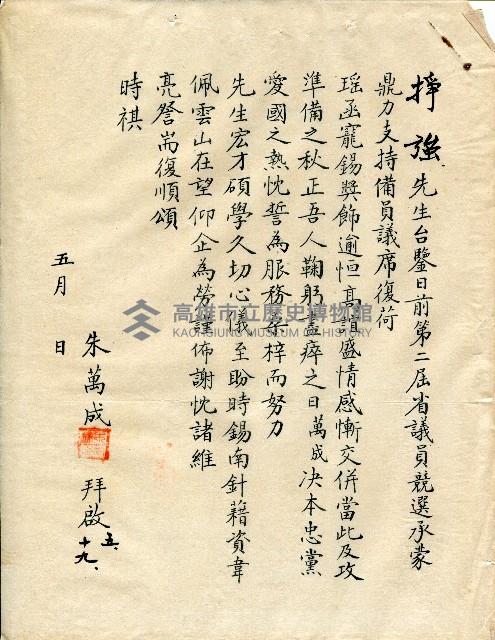 掙強先生台鑒日前第二屆省議員競選承蒙
鼎力支持備員議席復荷
瑶函寵錫獎飾逾恒高誼盛情感慚交併當此反攻
準備之秋正吾人鞠躬盡瘁之日萬成決本忠黨
愛國之熱忱誓為服務桑梓而努力
先生宏才碩學久切心儀至盼時錫南針藉資韋
佩雲山在望仰企為勞謹佈謝忱諸維
亮詧耑復順頌
時祺
朱萬成 拜啟
五月 日
五、十九、
高雄市立歷史博物館
KAOHSIUNG MUSEUM OF HISTORY